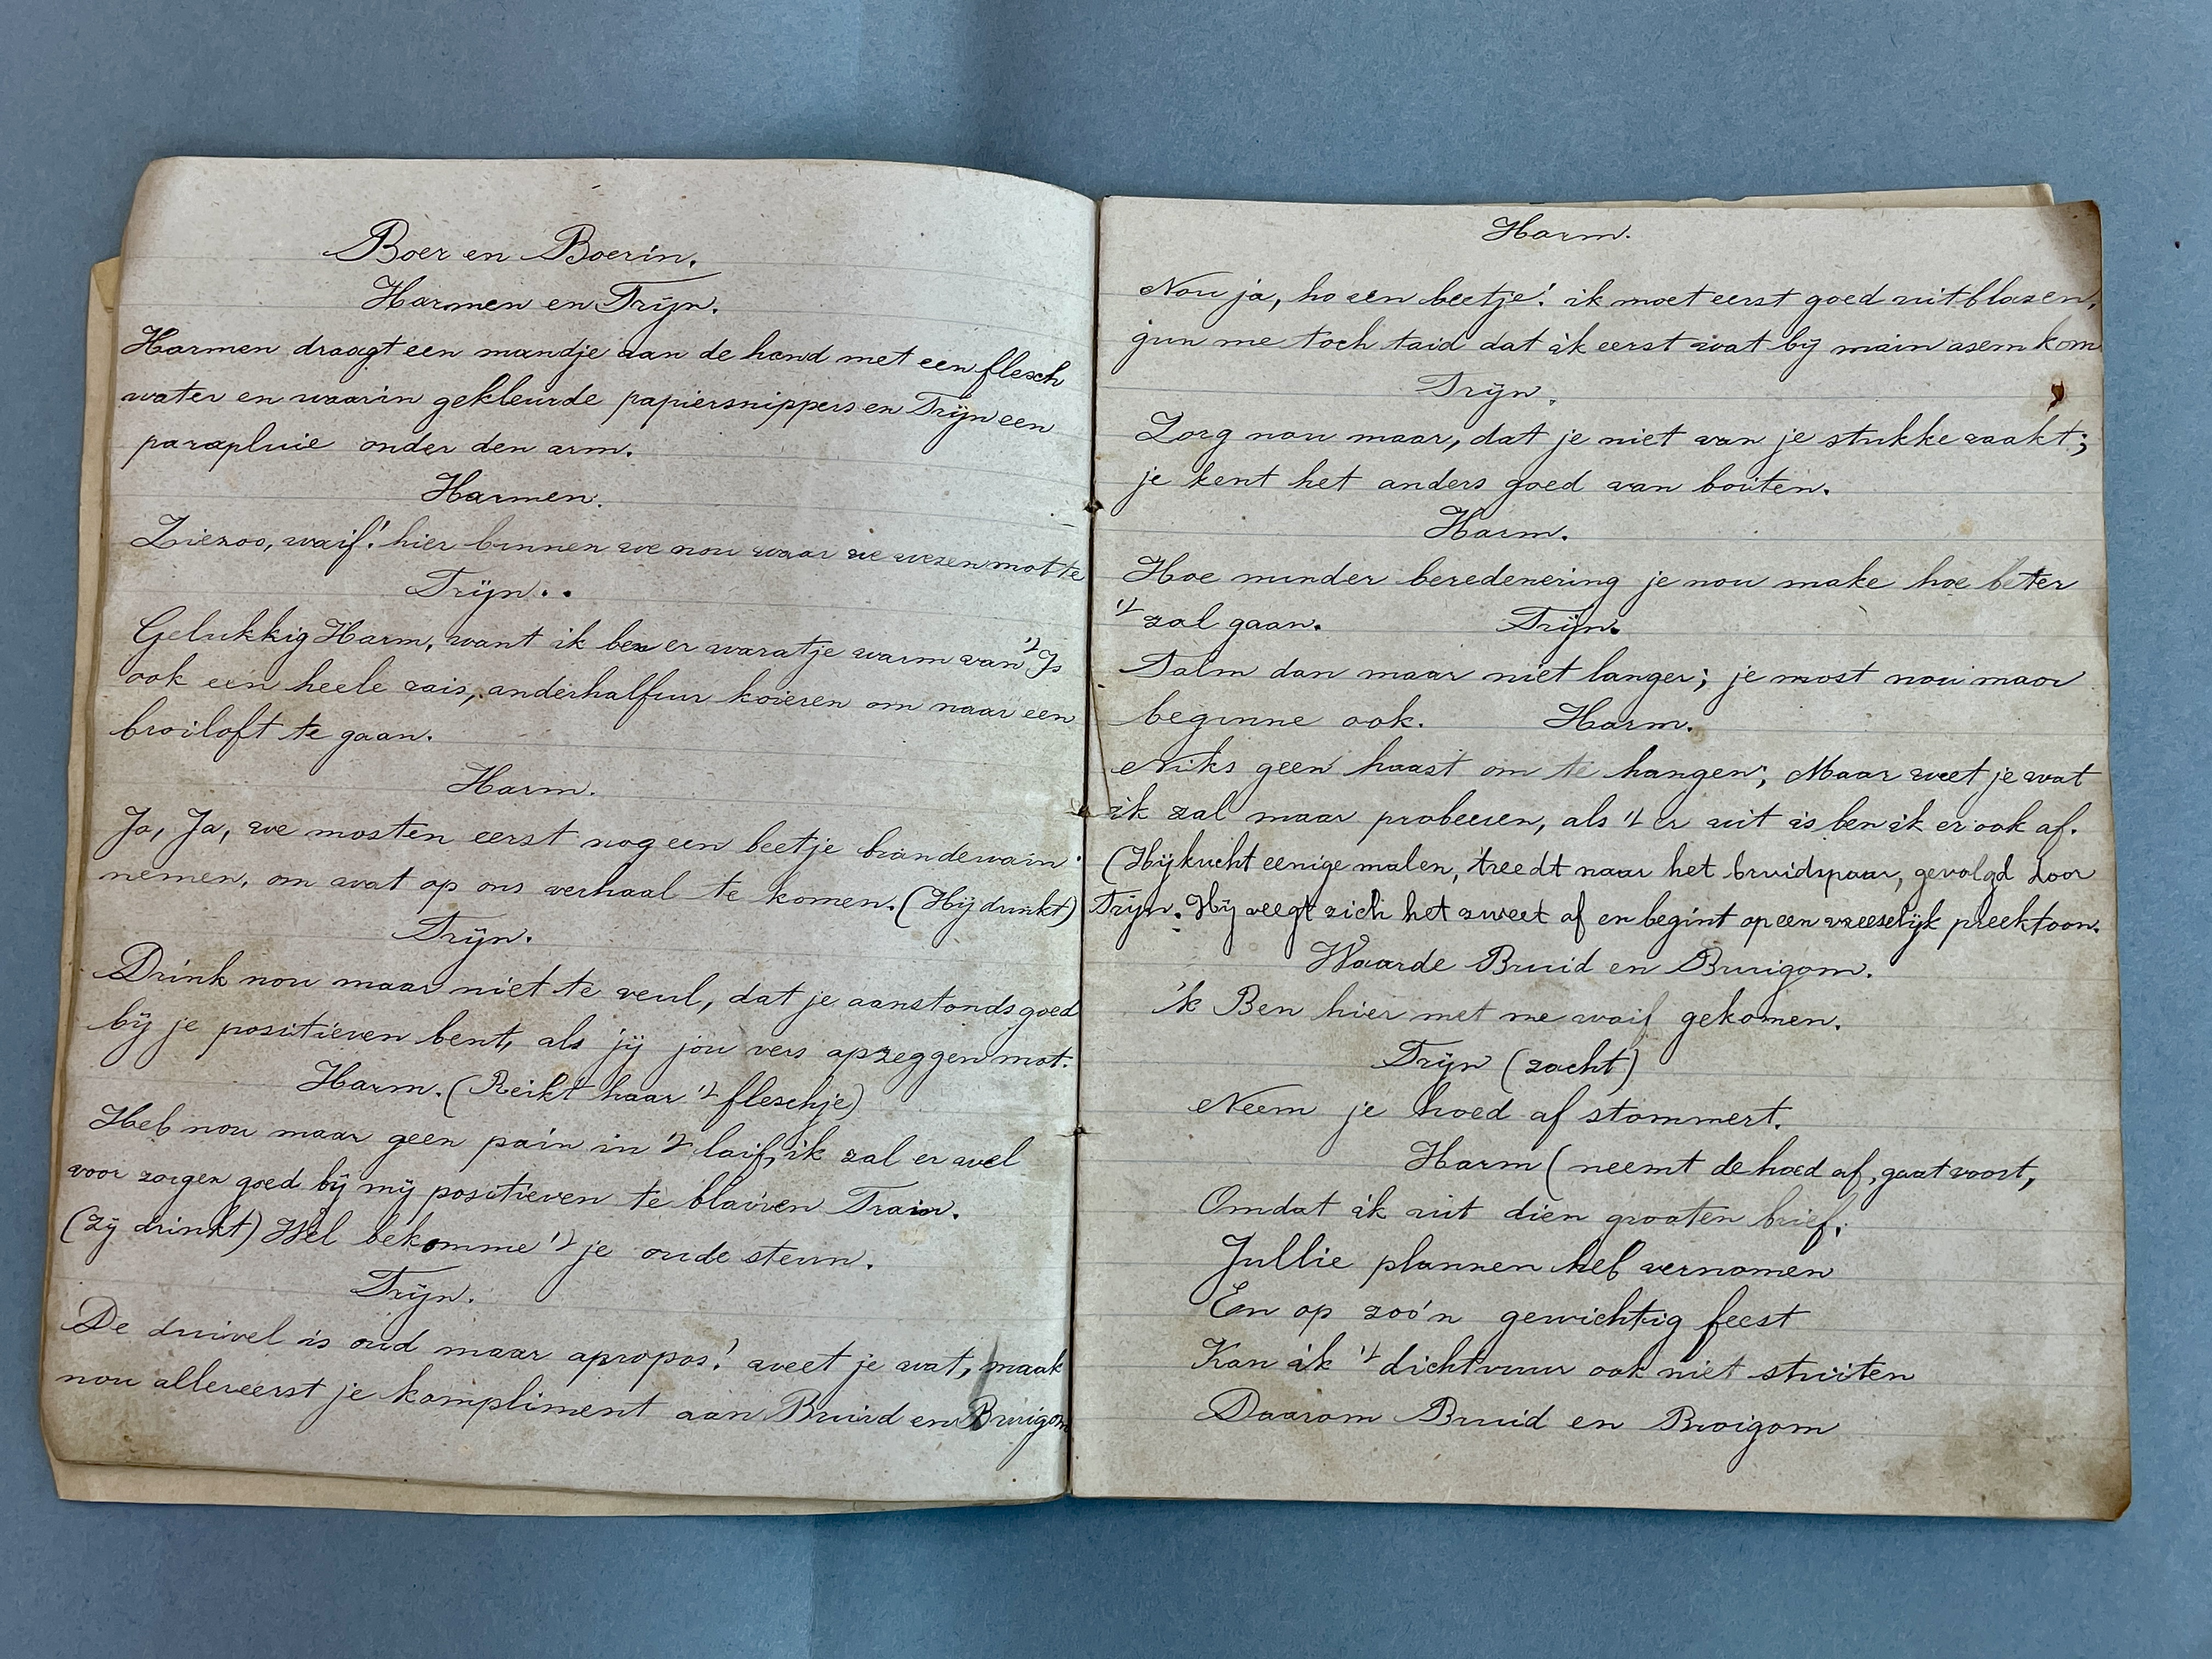 Boer en Boerin.
Harmen en Trijn.
Harmen draagt een mandje aan de hand met een flesch
water en waarin gekleurde papiersnippers en Trijn een
parapluie onder den arm.
Harmen.
Ziezoo, waif! hier binnen we nou waar we wezen motte
Trijn..
Gelukkig Harm, want ik ben er waratje warm van 't Is
ook een heele rais, anderhalfuur koieren om naar een
broiloft te gaan.
Harm.
Ja, Ja, we mosten eerst nog een beetje brandewain
nemen, om wat op ons verhaal te komen. (Hij drinkt)
Trijn.
Drink nou maar niet te veul, dat je aanstonds goed
bij je positieven bent, als jij jou vers opzeggen mot.
Harm. (Reikt haar 't fleschje)
Heb nou maar geen pain in 't laif, ik zal er wel
voor zorgen goed bij mij positieven te blaiven Train.
(Zij drinkt) Wel bekomme 't je oude steun.
Trijn.
De duivel is oud maar apropos! weet je wat, maak
nou allereerst je kompliment aan Bruid en Bruigom
Harm.
Nou ja, ho een beetje! ik moet eerst goed uitblazen,
gun me toch taid dat ik eerst wat bij main asem kom
Trijn.
Zorg nou maar, dat je niet van je stukke raakt;
je kent het anders goed van bouten.
Harm.
Hoe minder beredenering je nou make hoe beter
't zal gaan. Trijn.
Talm dan maar niet langer; je most nou maar
beginne ook. Harm.
Niks geen haast om te hangen; Maar weet je wat
ik zal maar probeeren, als 't er uit is ben ik er ook af.
(Hij kucht eenige malen, treedt naar het bruidspaar, gevolgd door
Trijn. Hij veegt zich het zweet af en begint op een vreeselijk preektoon.
Waarde Bruid en Bruigom.
'k Ben hier met me waif gekomen.
Trijn (zacht)
Neem je hoed af stommert.
Harm (neemt de hoed af, gaat voort,
Omdat ik uit dien grooten brief,
Jullie plannen heb vernomen
En op zoo'n gewichtig feest
Kan ik 't dichtvuur ook niet stuiten
Daarom Bruid en Broigom